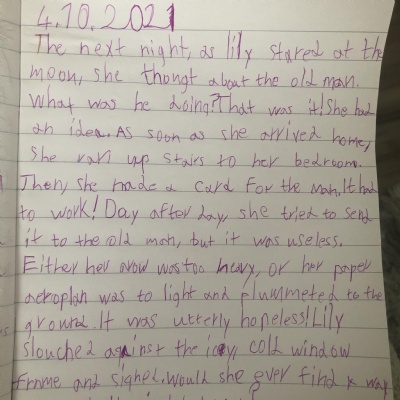 4.10.2021
The next night, as lily stared at the
moon, she thougt about the old man.
What was he doing? That was it! She had
an idea. As soon as she arrived home,
She ran up stairs to her bedroom.
Then, she made a card for the man. It had
to work! Day after day, she tried to send
it to the old man, but it was useless.
Either her arow was too heavy, or her paper
aeroplan was to light and plummeted to the
ground. It was utterly hopeless! Lily
slouched against the icey cold window
frame and sighed. Would she ever find a way